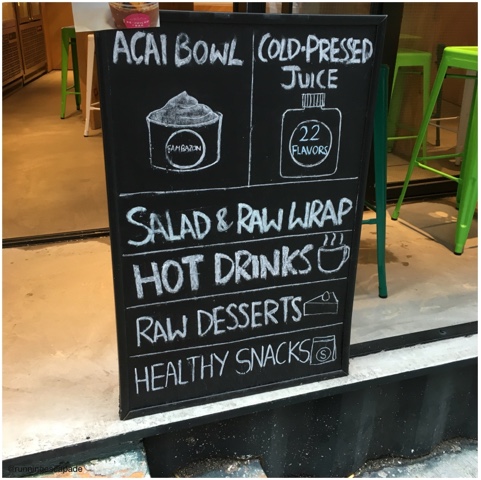 ACAI BOWL
COLD-PRESSED
JUICE
22
FLAVORS
SALAD & RAW WRAP
HOT DRINKS
RAW DESSERTS
HEALTHY SNACKS
S